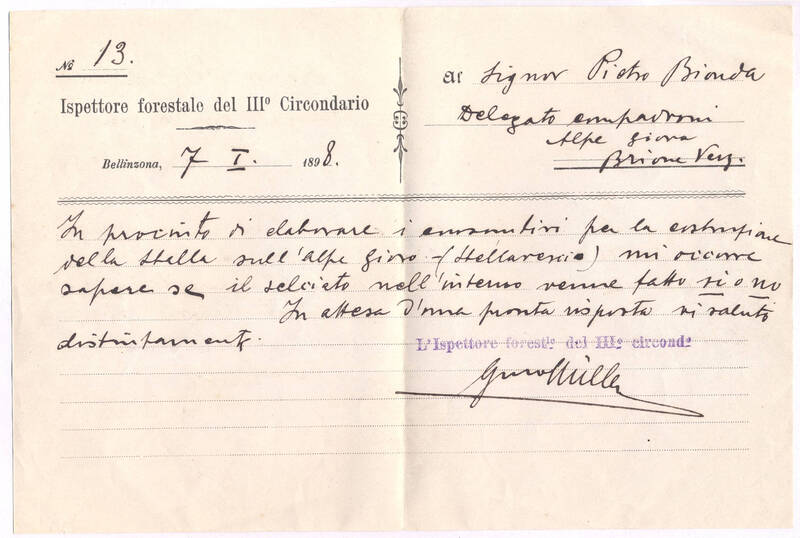 No 13.
Ispettore forestale del IIIo Circondario
Bellinzona, 7 I. 1898.
al Signor Pietro Bionda
Delegato compadroni
Alpe Giova
Brione Verz.
In procinto di elaborare i consuntivi per la costruzione
della stalla sull'Alpe Giovo - (Stellarescio) mi occorre
sapere se il selciato nell'interno venne fatto si o no
In attesa d'una pronta risposta vi saluto
distintamente.
L'Ispettore forestle del IIIo circondo
Müller